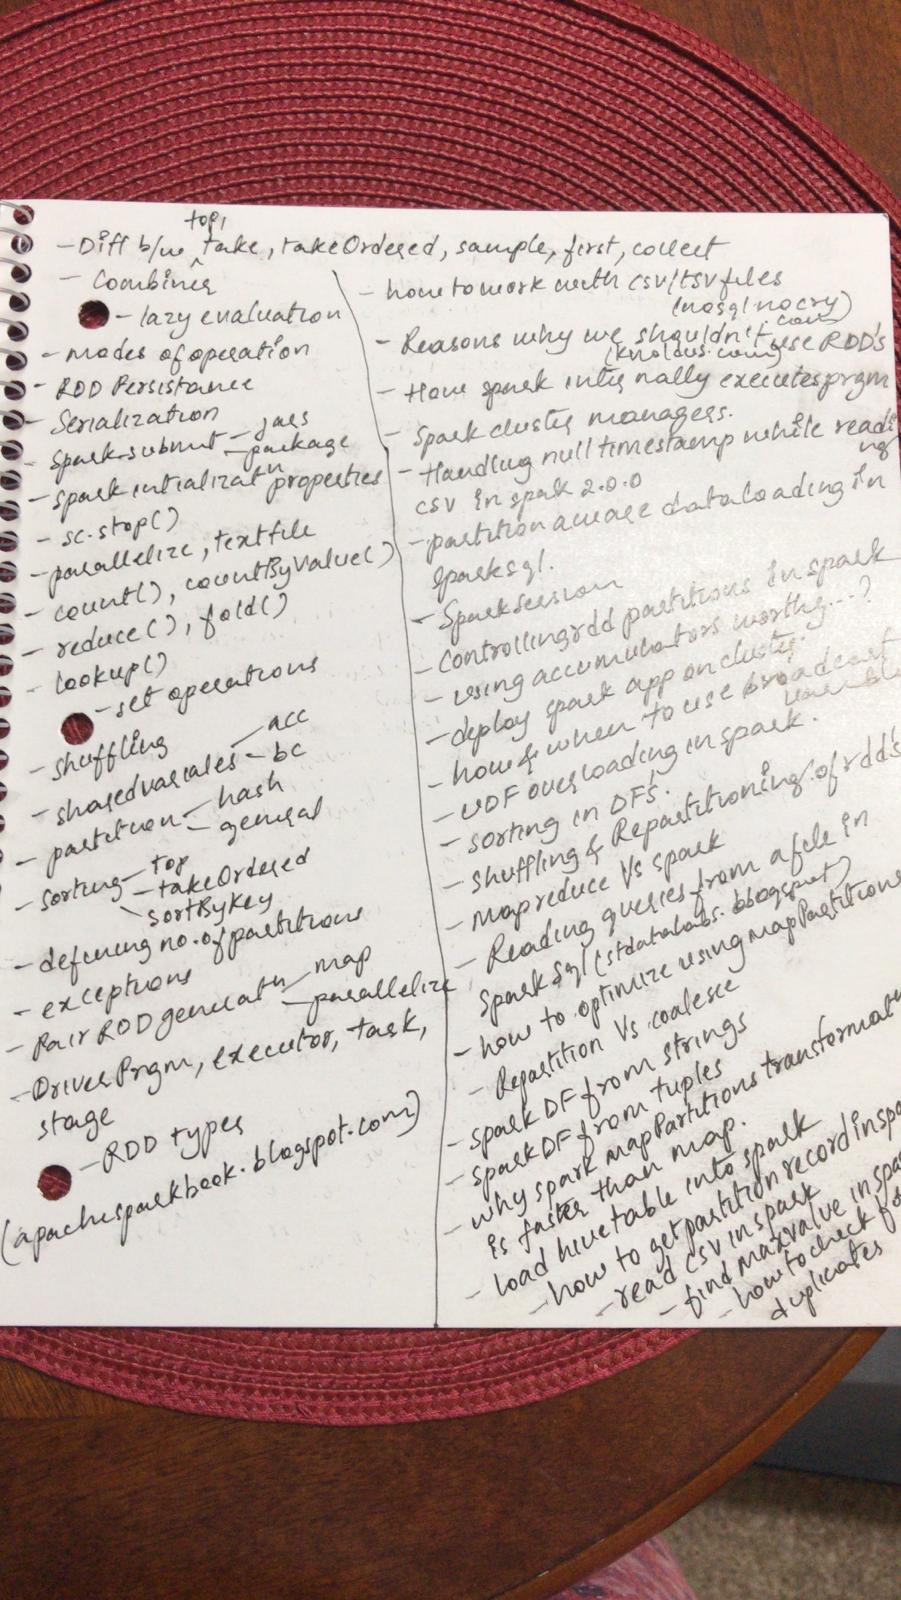 top,
- Diff b/w ^ take, takeOrdered, sample, first, collect
- Combiner
- lazy evaluation
- modes of operation
- RDD Persistance
- Serialization
- Spark-submit - jars
- package
- Spark intializatn properties
- sc.stop()
- parallelize, textfile
- count(), countByValue()
- reduce(), fold()
- lookup()
- set operations
- shuffling
- shared variales - acc
- bc
- partition - hash
- general
- Sorting - top
- takeOrdered
- sortByKey
- defining no. of partitions
- exceptions
- Pair RDD generatn - map
- parallelize
- Driver Prgm, executor, task,
stage
- RDD types
(apachesparkbook.blogspot.com)
- how to work with csv/tsv files
(nosqlnocry)
com
- Reasons why we shouldn't use RDD's
(knoldus.com)
- How spark internally executes prgm
- Spark cluster managers.
- Handling null timestamp while readi
ng
csv in spark 2.0.0
- partition aware data loading in
sparksql.
- SparkSession
- Controlling rdd partitions in spark
- using accumulators worthy...?
- deploy spark app on cluster.
- how & when to use broadcast
variable
- UDF overloading in spark.
- sorting in DF's.
- Shuffling & Repartitioning of rdd's
- Mapreduce Vs spark
- Reading queries from a file in
Spark Sql (stdatalabs.blogspot)
- how to optimize using mapPartitions
- Repartition Vs coalesce
- Spark DF from strings
- Spark DF from tuples
- why spark mapPartitions transformat
is faster than map.
- load hive table into spark
- how to get partition record in spa
- read CSV in spark
- find maxvalue in spa
- how to check fo
duplicates